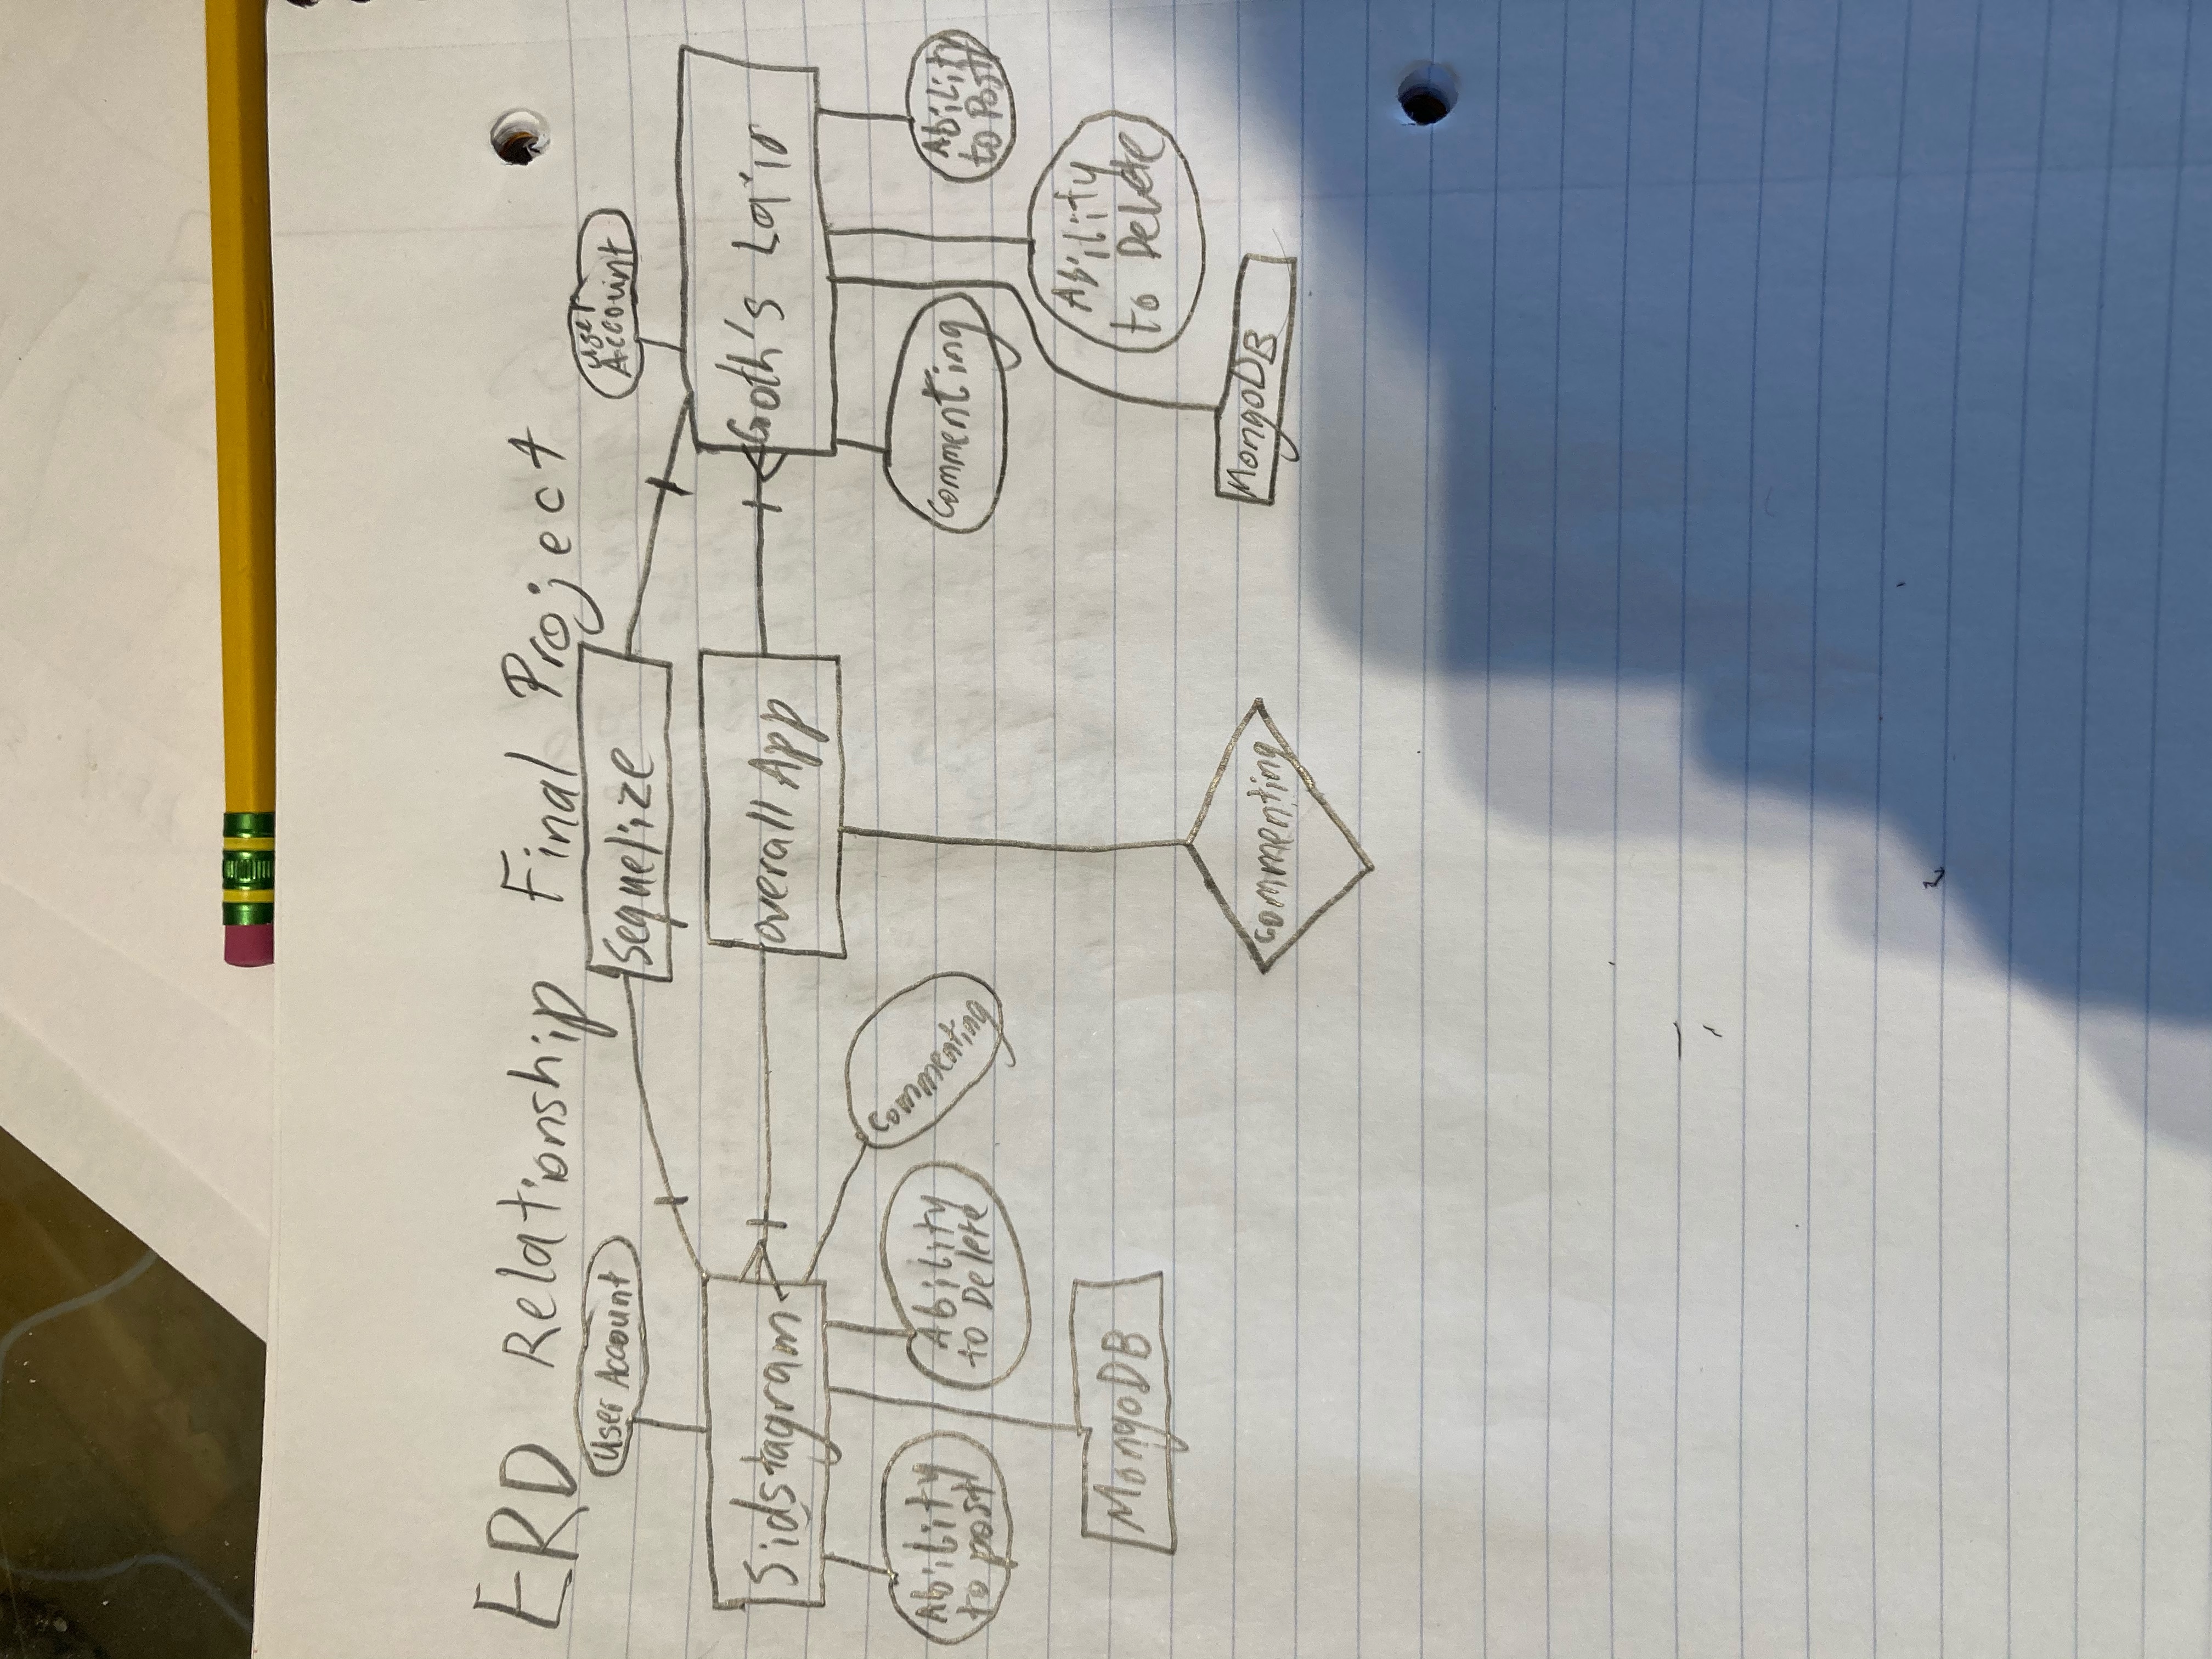 ERD Relationship Final Project
User Account
Sequelize
User
Account
Sidstagram
overall App
Goth's Lair
Ability
to post
Ability
to Delete
Commenting
Commenting
Ability
to Post
Ability
to Delete
MongoDB
Commenting
MongoDB